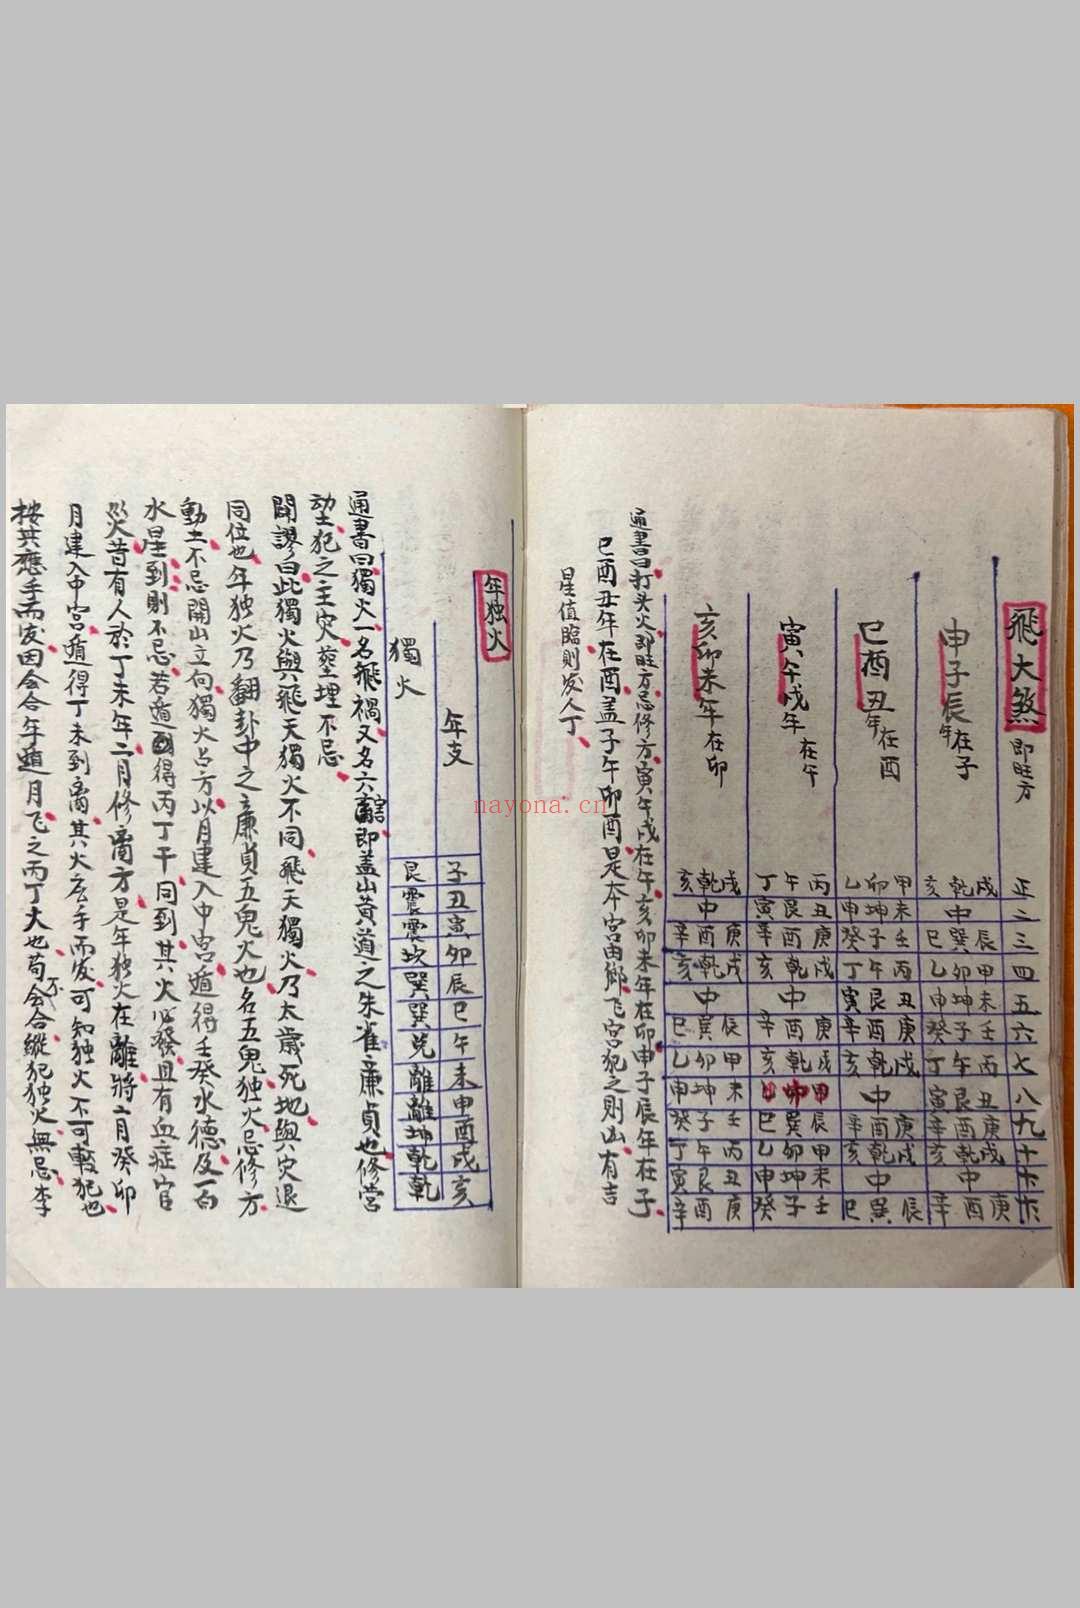 飛大煞 即旺方
正 二 三 四 五 六 七 八 九 十 十一 十二
申子辰年在子
戌乾亥 中 辰巽巳 甲卯乙 未坤申 壬子癸 丙午丁 丑艮寅 庚酉辛 戌乾亥 中 庚酉辛
巳酉丑年在酉
甲卯乙 未坤申 壬子癸 丙午丁 丑艮寅 庚酉辛 戌乾亥 中 庚酉辛 戌乾亥 中 辰巽巳
寅午戌年在午
丙午丁 丑艮寅 庚酉辛 戌乾亥 中 庚酉辛 戌乾亥 中 辰巽巳 甲卯乙 未坤申 壬子癸
亥卯未年在卯
戌乾亥 中 庚酉辛 戌乾亥 中 辰寅巳 甲卯乙 未坤申 壬子癸 丙午丁 丑艮寅 庚酉辛
通書曰打头火即旺方忌修方寅午戌在午亥卯未年在卯申子辰年在子
巳酉丑年在酉盖子午卯酉是本宫由鄉飞宫犯之則凶有吉
星值臨則发人丁
年独火
年支 子 丑 寅 卯 辰 巳 午 未 申 酉 戌 亥
獨火 艮 震 震 坎 巽 巽 兑 離 離 坤 乾 乾
通書曰獨火一名飛禍又名六害即盖山黄道之朱雀亷貞也修営
动土犯之主灾葬埋不忌
闢謬曰此獨火與飛天獨火不同飛天獨火乃太歲死地與灾退
同位也年独火乃翻卦中之亷貞五鬼火也名五鬼独火忌修方
動土不忌開山立向獨火占方以月建入中宫遁得壬癸水德及一白
水星到則不忌若遁得丙丁干同到其火必發且有血症官
災昔有人於丁未年二月修离方是年独火在離將二月癸卯
月建入中宫遁得丁未到离其火应手而发可知独火不可軽犯也
按其應手而发因会合年遁月飞之丙丁火也苟不会合縱犯独火無忌李
nayona.cn